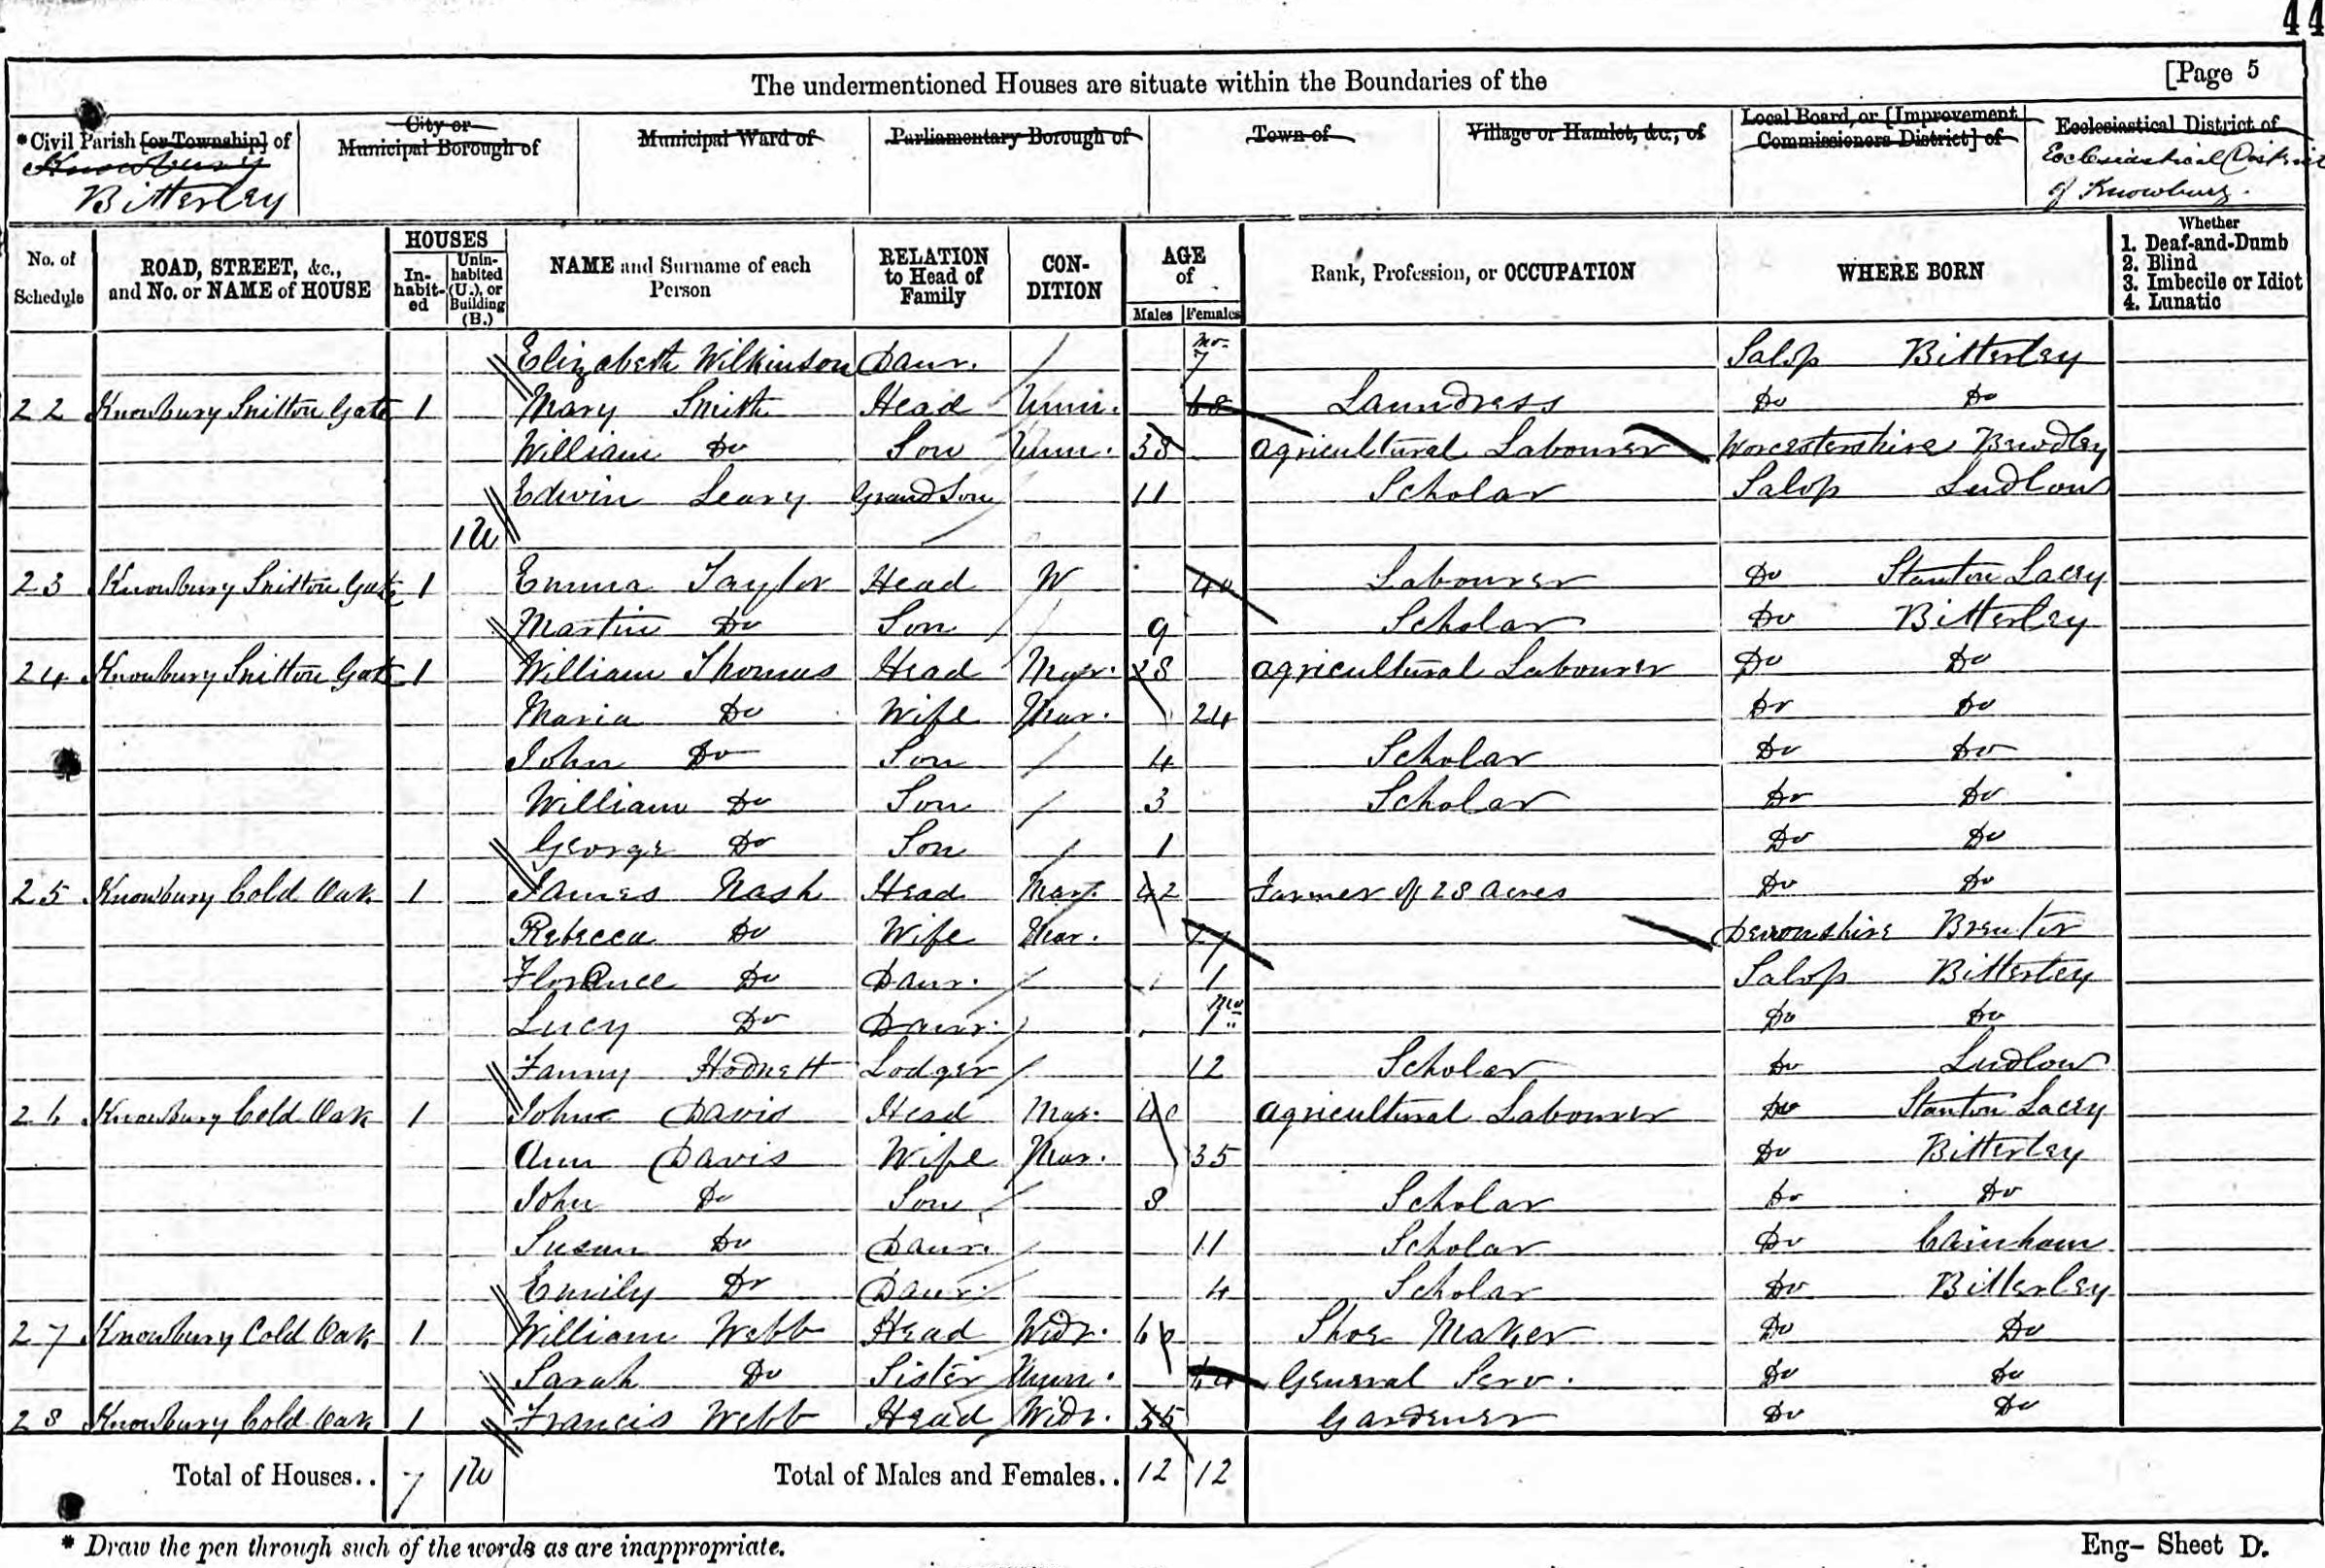 44
The undermentioned Houses are situate within the Boundaries of the [Page 5
*Civil Parish [or Township] of City or Municipal Borough of Municipal Ward of Parliamentary Borough of Town of Village or Hamlet, &c., of Local Board, or [Improvement Commissioners District] of Ecclesiastical District of
Knowbury Bitterley Ecclesiastical District of Knowbury.
No. of Schedule ROAD, STREET, &c., and No. or NAME of HOUSE HOUSES In-habit-ed Unin-habited (U.), or Building (B.) NAME and Surname of each Person RELATION to Head of Family CON-DITION AGE of Males Females Rank, Profession, or OCCUPATION WHERE BORN Whether 1. Deaf-and-Dumb 2. Blind 3. Imbecile or Idiot 4. Lunatic
Elizabeth Wilkinson Daur. 7 mo. Salop Bitterley
22 Knowbury Snitton Gate 1 Mary Smith Head Unm. 68 Laundress Do Do
William Do Son Unm. 38 Agricultural Labourer Worcestershire Bewdley
Edwin Leary Grand Son 11 Scholar Salop Ludlow
1U
23 Knowbury Snitton Gate 1 Emma Taylor Head W 40 Labourer Do Stanton Lacey
Martin Do Son 9 Scholar Do Bitterley
24 Knowbury Snitton Gate 1 William Thomas Head Mar. 28 Agricultural Labourer Do Do
Maria Do Wife Mar. 24 Do Do
John Do Son 4 Scholar Do Do
William Do Son 3 Scholar Do Do
George Do Son 1 Do Do
25 Knowbury Cold Oak 1 James Nash Head Mar. 42 Farmer of 28 acres Do Do
Rebecca Do Wife Mar. 27 Devonshire
Florence Do Daur. 1 Salop Bitterley
Lucy Do Daur. 1 mo Do Do
Fanny Hodnett Lodger 12 Scholar Do Ludlow
26 Knowbury Cold Oak 1 John Davis Head Mar. 40 Agricultural Labourer Do Stanton Lacey
Ann Davis Wife Mar. 35 Do Bitterley
John Do Son 8 Scholar Do Do
Susan Do Daur. 11 Scholar Do Cainham
Emily Do Daur. 4 Scholar Do Bitterley
27 Knowbury Cold Oak 1 William Webb Head Widr. 60 Shoe Maker Do Do
Sarah Do Sister Unm. 64 General Serv. Do Do
28 Knowbury Cold Oak 1 Francis Webb Head Widr. 55 Gardener Do Do
Total of Houses.. 7 1U Total of Males and Females.. 12 12
* Draw the pen through such of the words as are inappropriate. Eng- Sheet D.